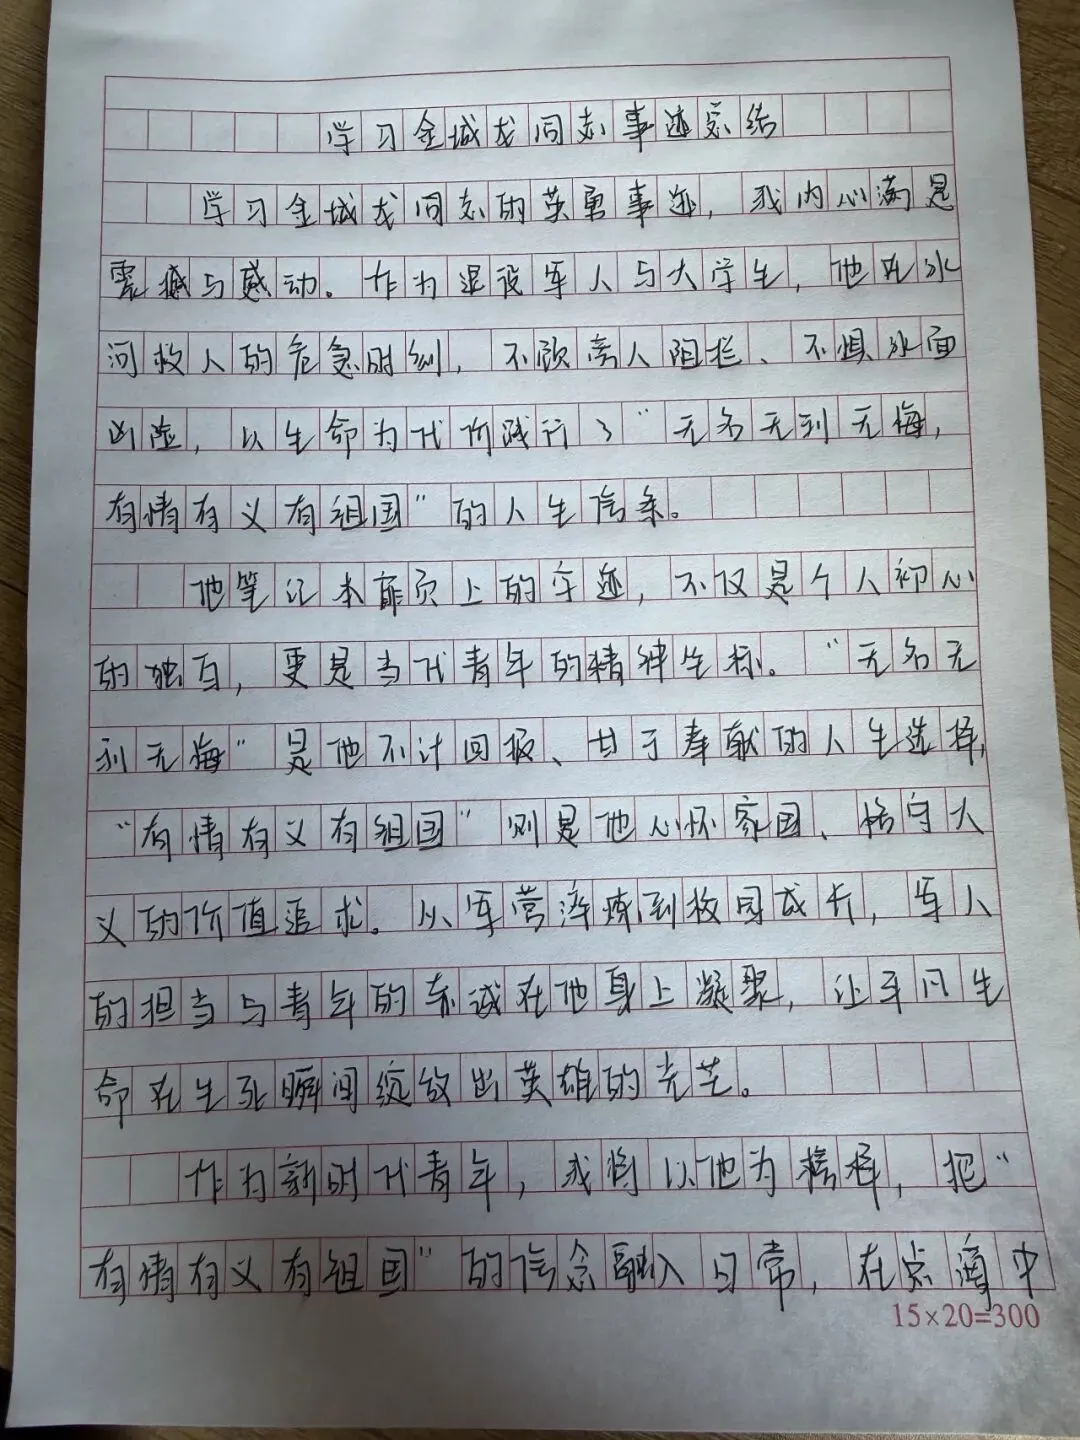 学习金城龙同志事迹总结
学习金城龙同志的英勇事迹，我内心满是
震撼与感动。作为退役军人与大学生，他在冰
河救人的危急时刻，不顾旁人阻拦、不惧冰面
凶险，以生命为代价践行了“无名无利无悔，
有情有义有祖国”的人生信条。
他笔记本扉页上的字迹，不仅是个人初心
的独白，更是当代青年的精神坐标。“无名无
利无悔”是他不计回报、甘于奉献的人生选择，
“有情有义有祖国”则是他心怀家国、恪守大
义的价值追求。从军营淬炼到校园成长，军人
的担当与青年的赤诚在他身上凝聚，让平凡生
命在生死瞬间绽放出英雄的光芒。
作为新时代青年，我将以他为榜样，把“
有情有义有祖国”的信念融入日常，在点滴中
15×20=300